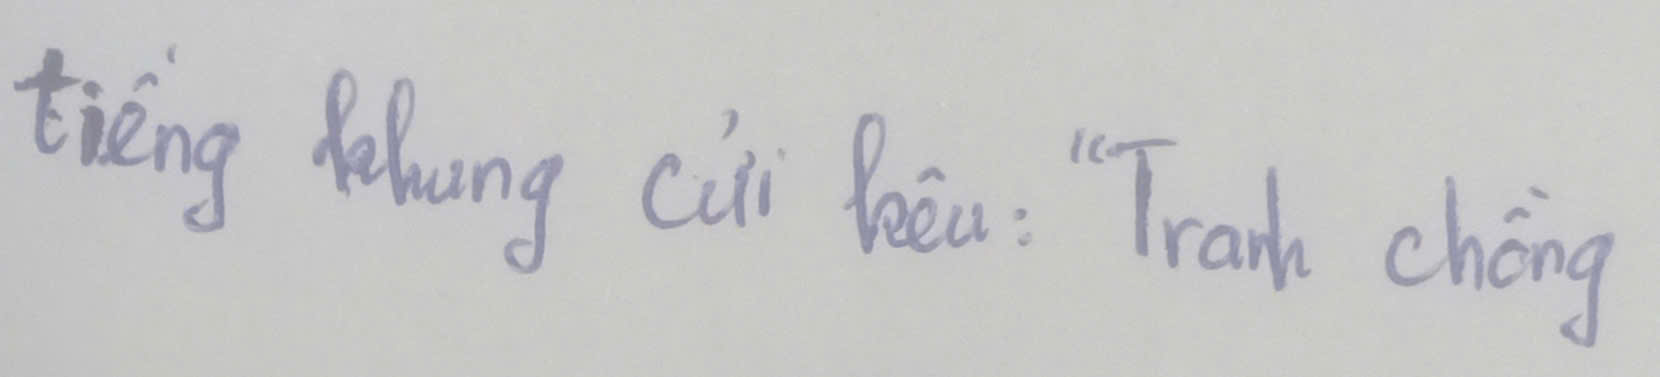 tiếng khung cửi kêu: "Tranh chồng